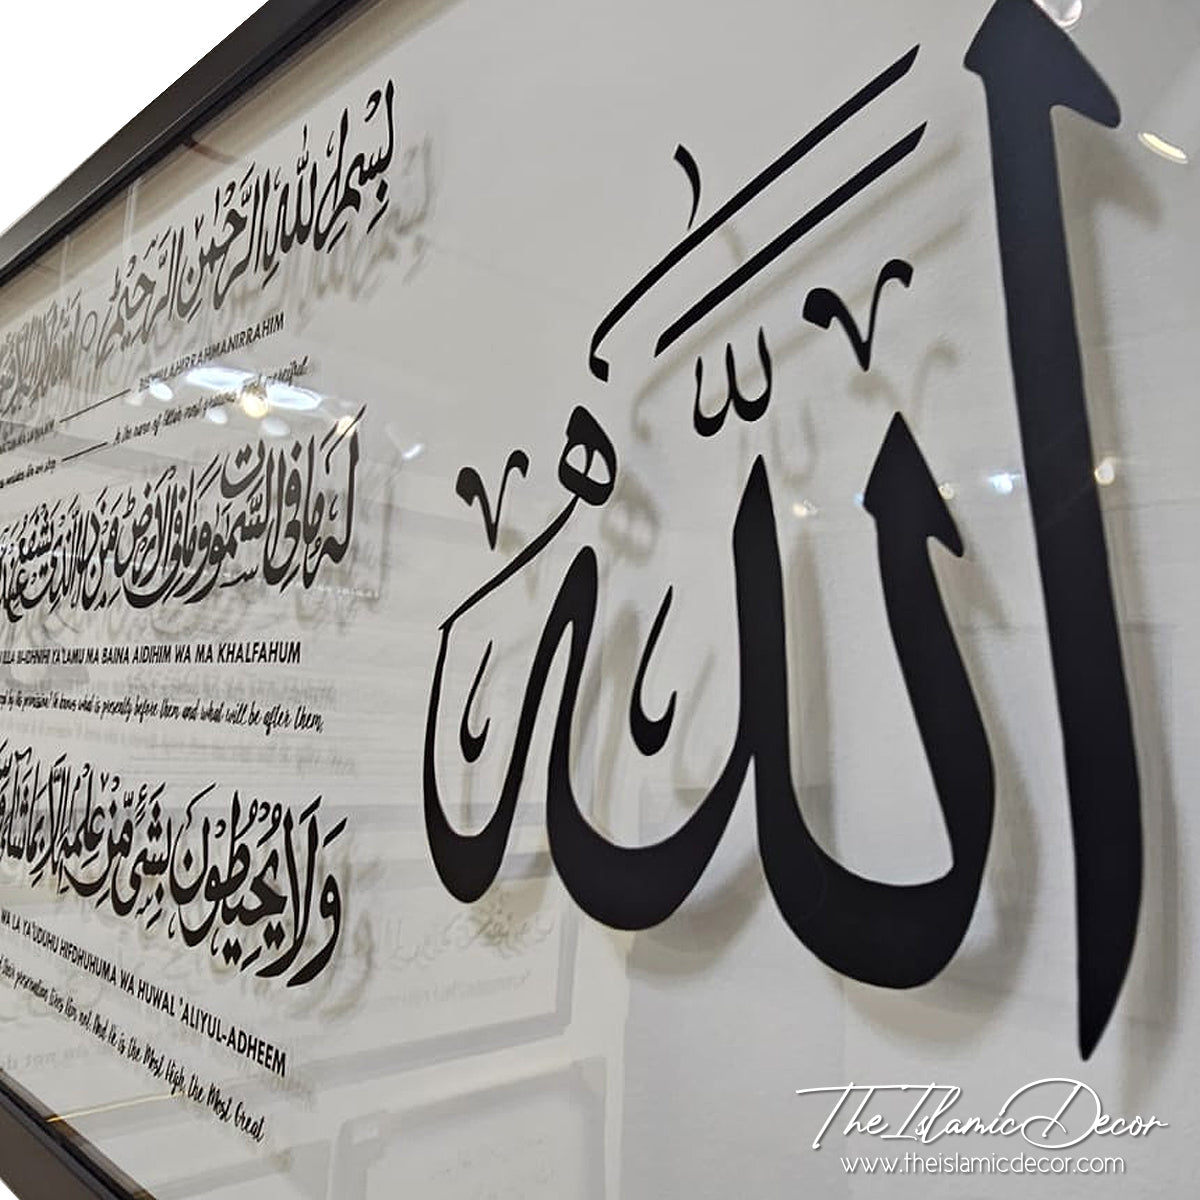 بِسْمِ اللهِ الرَّحْمٰنِ الرَّحِيْمِ
BISMILLAHIRRAHMANIRRAHIM
In the name of Allah
لَهُ مَا فِي السَّمٰوٰتِ وَمَا فِي الْاَرْضِ مَنْ ذَا الَّذِيْ يَشْفَعُ
ILLA BI-IDHNIHI YA'LAMU MA BAINA AIDIHIM WA MA KHALFAHUM
by his permission? he knows what is presently before them and what will be after them,
وَلَا يُحِيْطُوْنَ بِشَيْءٍ مِّنْ عِلْمِهِ اِلَّا بِمَا شَآءَ
WA LA YA'UDUHU HIFDHUHUMA WA HUWAL 'ALIYUL-ADHEEM
their preservation tires Him not. And He is the Most High, the Most Great
الله
TheIslamicDecor
www.theislamicdecor.com